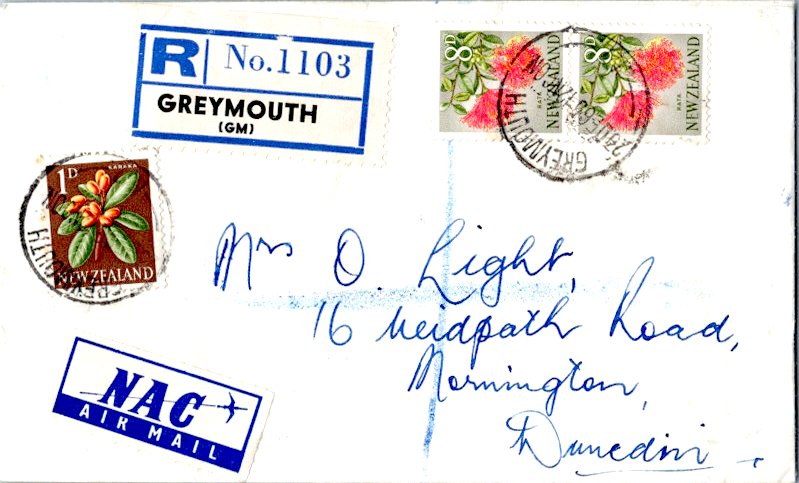 R No.1103
GREYMOUTH
(GM)
8D
RATA
NEW ZEALAND
8D
RATA
NEW ZEALAND
GREYMOUTH
1D
KARAKA
NEW ZEALAND
GREYMOUTH
Mrs O. Light,
16 Neidpath Road,
Mornington,
Dunedin
NAC
AIR MAIL